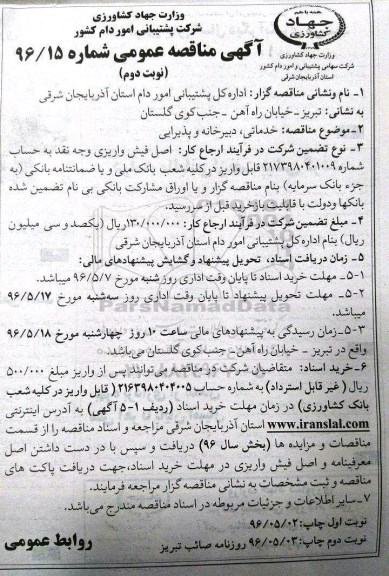 وزارت جهاد کشاورزی
شرکت پشتیبانی امور دام کشور
آگهی مناقصه عمومی شماره ۹۶/۱۵
(نوبت دوم)
جهاد
کشاورزی
وزارت جهاد کشاورزی
شرکت سهامی پشتیبانی و امور دام کشور
استان آذربایجان شرقی
۱- نام ونشانی مناقصه گزار: اداره کل پشتیبانی امور دام استان آذربایجان شرقی
به نشانی: تبریز -خیابان راه آهن -جنب کوی گلستان
۲-موضوع مناقصه: خدماتی، دبیرخانه و پذیرایی
۳- نوع تضمین شرکت در فرآیند ارجاع کار: اصل فیش واریزی وجه نقد به حساب
شماره ۲۱۷۳۹۸۰۴۰۱۰۰۹ قابل واریز در کلیه شعب بانک ملی و یا ضمانتنامه بانکی (به
جزء بانک سرمایه) بنام مناقصه گزار و یا اوراق مشارکت بانکی بی نام تضمین شده
بانکها ودولت با قابلیت بازخرید قبل از سررسید.
۴- مبلغ تضمین شرکت در فرآیند ارجاع کار: ۱۳۰/۰۰۰/۰۰۰ریال (یکصد و سی میلیون
ریال) بنام اداره کل پشتیبانی امور دام استان آذربایجان شرقی
۵- زمان دریافت اسناد، تحویل پیشنهاد و گشایش پیشنهادهای مالی:
۵-۱- مهلت خرید اسناد تا پایان وقت اداری روز شنبه مورخ ۹۶/۵/۷ میباشد.
۵-۲- مهلت تحویل پیشنهاد تا پایان وقت اداری روز سه‌شنبه مورخ ۹۶/۵/۱۷
میباشد.
۵-۳-زمان رسیدگی به پیشنهادهای مالی ساعت ۱۰ روز چهارشنبه مورخ ۹۶/۵/۱۸
واقع در تبریز - خیابان راه آهن- جنب کوی گلستان می‌باشد.
۶-خرید اسناد: متقاضیان شرکت در مناقصه می‌توانند پس از واریز مبلغ ۵۰۰/۰۰۰
ریال (غیر قابل استرداد) به شماره حساب ۲۱۶۳۹۸۰۴۰۴۰۰۵ (قابل واریز در کلیه شعب
بانک کشاورزی) در زمان مهلت خرید اسناد (ردیف ۱-۵ آگهی) به آدرس اینترنتی
www.iranslal.com استان آذربایجان شرقی مراجعه و اسناد مناقصه را از قسمت
مناقصات و مزایده ها (بخش سال ۹۶) دریافت و سپس با در دست داشتن اصل
معرفینامه و اصل فیش واریزی در مهلت خرید اسناد،جهت دریافت پاکت های
مناقصه و ثبت مشخصات به نشانی مناقصه گزار مراجعه فرمایند.
۷-سایر اطلاعات و جزئیات مربوطه در اسناد مناقصه مندرج می‌باشد.
نوبت اول چاپ:۹۶/۰۵/۰۲
نوبت دوم چاپ:۹۶/۰۵/۰۳ روزنامه صائب تبریز
روابط عمومی
ParsNamadData